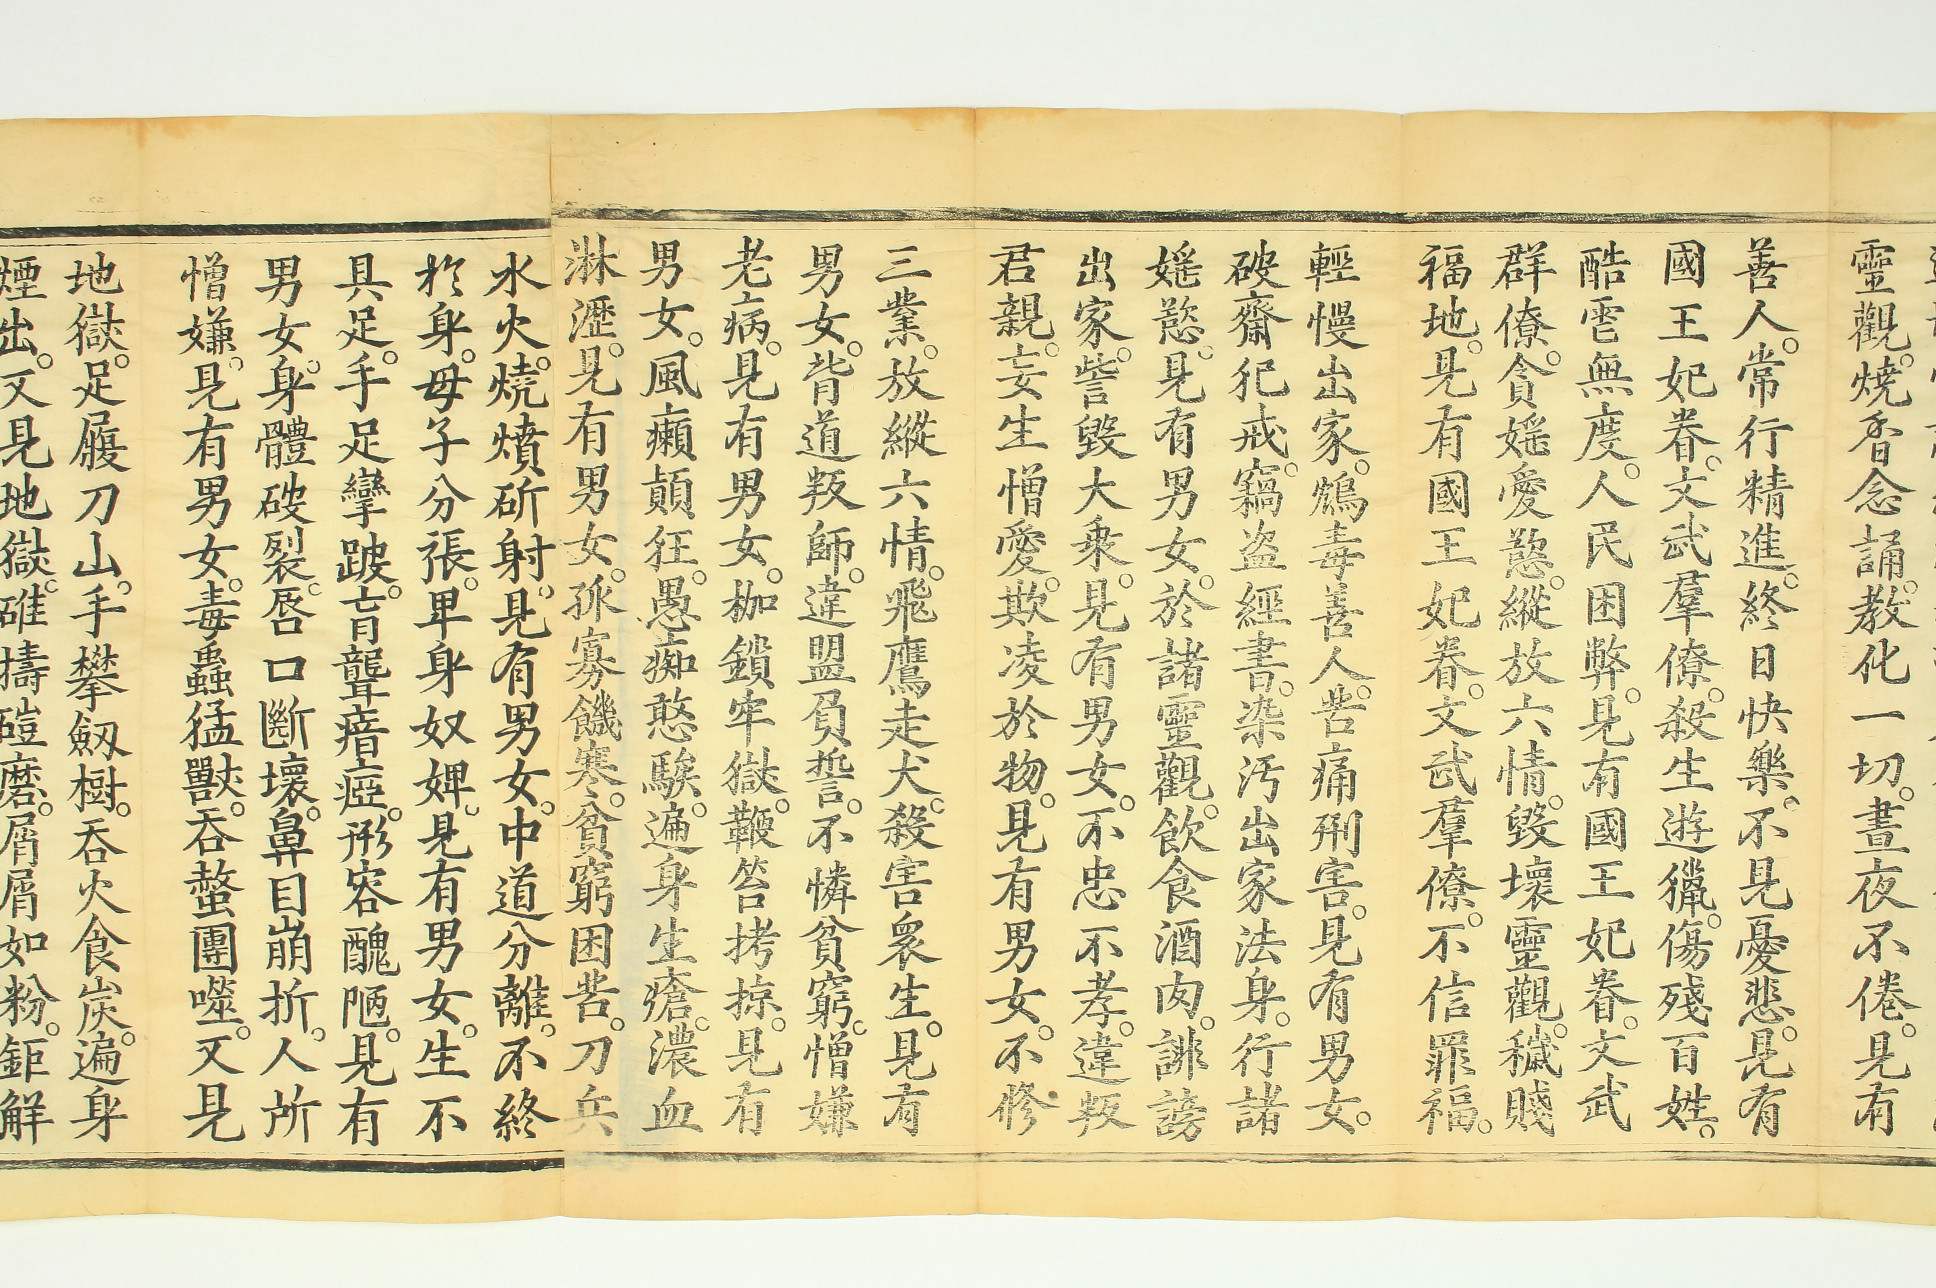 靈觀。燒香念誦。教化一切。晝夜不倦。見有
善人。常行精進。終日快樂。不見憂悲。見有
國王妃眷。文武羣僚。殺生遊獵。傷殘百姓。
酷虐無度。人民困弊。見有國王妃眷。文武
群僚。貪婬愛慾。縱放六情。毀壞靈觀。穢賤
福地。見有國王妃眷。文武羣僚。不信罪福。
輕慢出家。鴆毒善人。苦痛刑害。見有男女。
破齋犯戒。竊盜經書。染汚出家法身。行諸
婬慾。見有男女。於諸靈觀。飲食酒肉。誹謗
出家。訾毀大乘。見有男女。不忠不孝。違叛
君親。妄生憎愛。欺凌於物。見有男女。不修
三業。放縱六情。飛鷹走犬。殺害衆生。見有
男女。背道叛師。違盟負誓。不憐貧窮。憎嫌
老病。見有男女。枷鎖牢獄。鞭笞拷掠。見有
男女。風癩顛狂。愚痴憨騃。遍身生瘡。濃血
淋瀝。見有男女。孤寡饑寒。貧窮困苦。刀兵
水火。燒燌斫射。見有男女。中道分離。不終
於身。母子分張。卑身奴婢。見有男女。生不
具足。手足攣跛。盲聾瘖瘂。形容醜陋。見有
男女。身體破裂。唇口斷壞。鼻目崩折。人所
憎嫌。見有男女。毒蟲猛獸。吞螫團噬。又見
地獄。足履刀山。手攀劒樹。吞火食炭。遍身
煙出。又見地獄。碓擣磑磨。屑屑如粉。鉅解